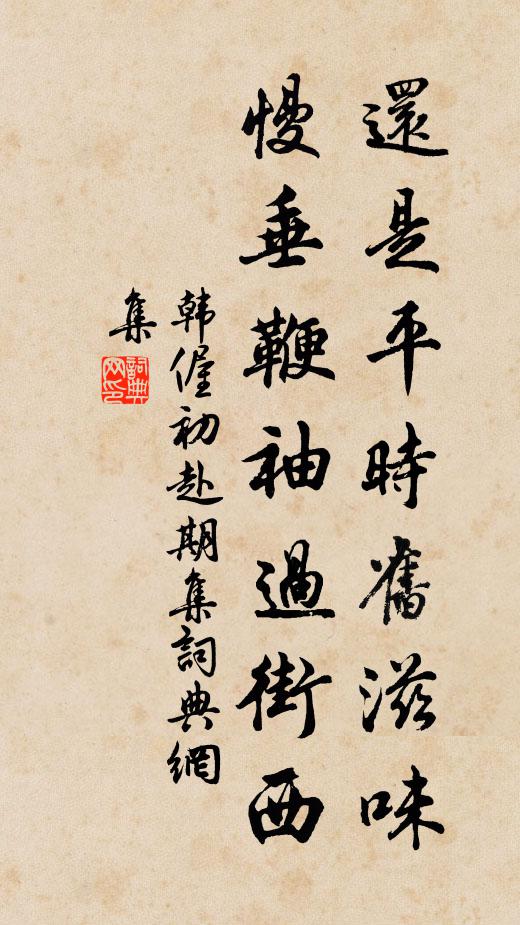 還是平時舊滋味
慢垂鞭袖過街西
韩偓初赴期集詞典網
集
詞典网印